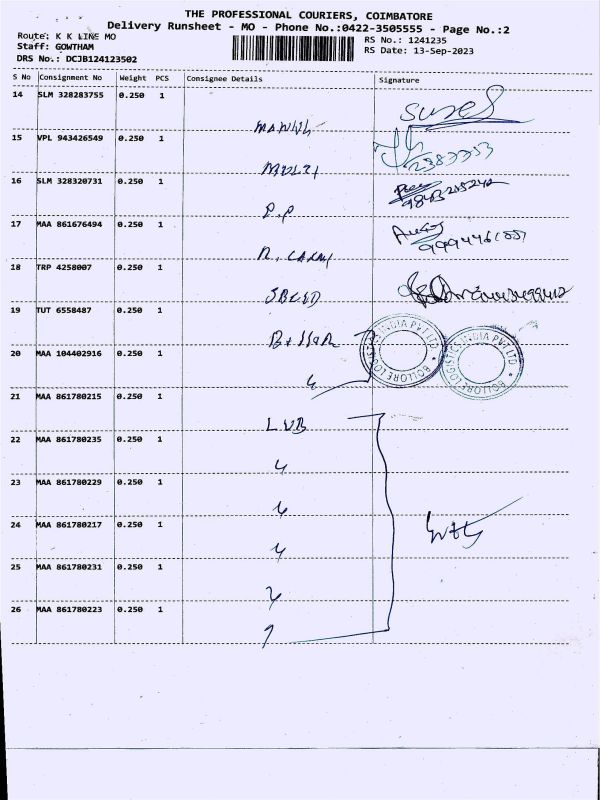 THE PROFESSIONAL COURIERS, COIMBATORE
Delivery Runsheet - MO - Phone No.:0422-3505555 - Page No.:2
Route: K K LINE MO
RS No.: 1241235
Staff: GOWTHAM
RS Date: 13-Sep-2023
DRS No.: DCJB124123502
S No Consignment No Weight PCS Consignee Details Signature
14 SLM 328283755 0.250 1
15 VPL 943426549 0.250 1
16 SLM 328320731 0.250 1
P.P
17 MAA 861676494 0.250 1
18 TRP 4258007 0.250 1
19 TUT 6558487 0.250 1
20 MAA 104402916 0.250 1
BOLLORE LOGISTICS INDIA PVT LTD
BOLLORE LOGISTICS INDIA PVT LTD
21 MAA 861780215 0.250 1
LVB
22 MAA 861780235 0.250 1
23 MAA 861780229 0.250 1
24 MAA 861780217 0.250 1
25 MAA 861780231 0.250 1
26 MAA 861780223 0.250 1